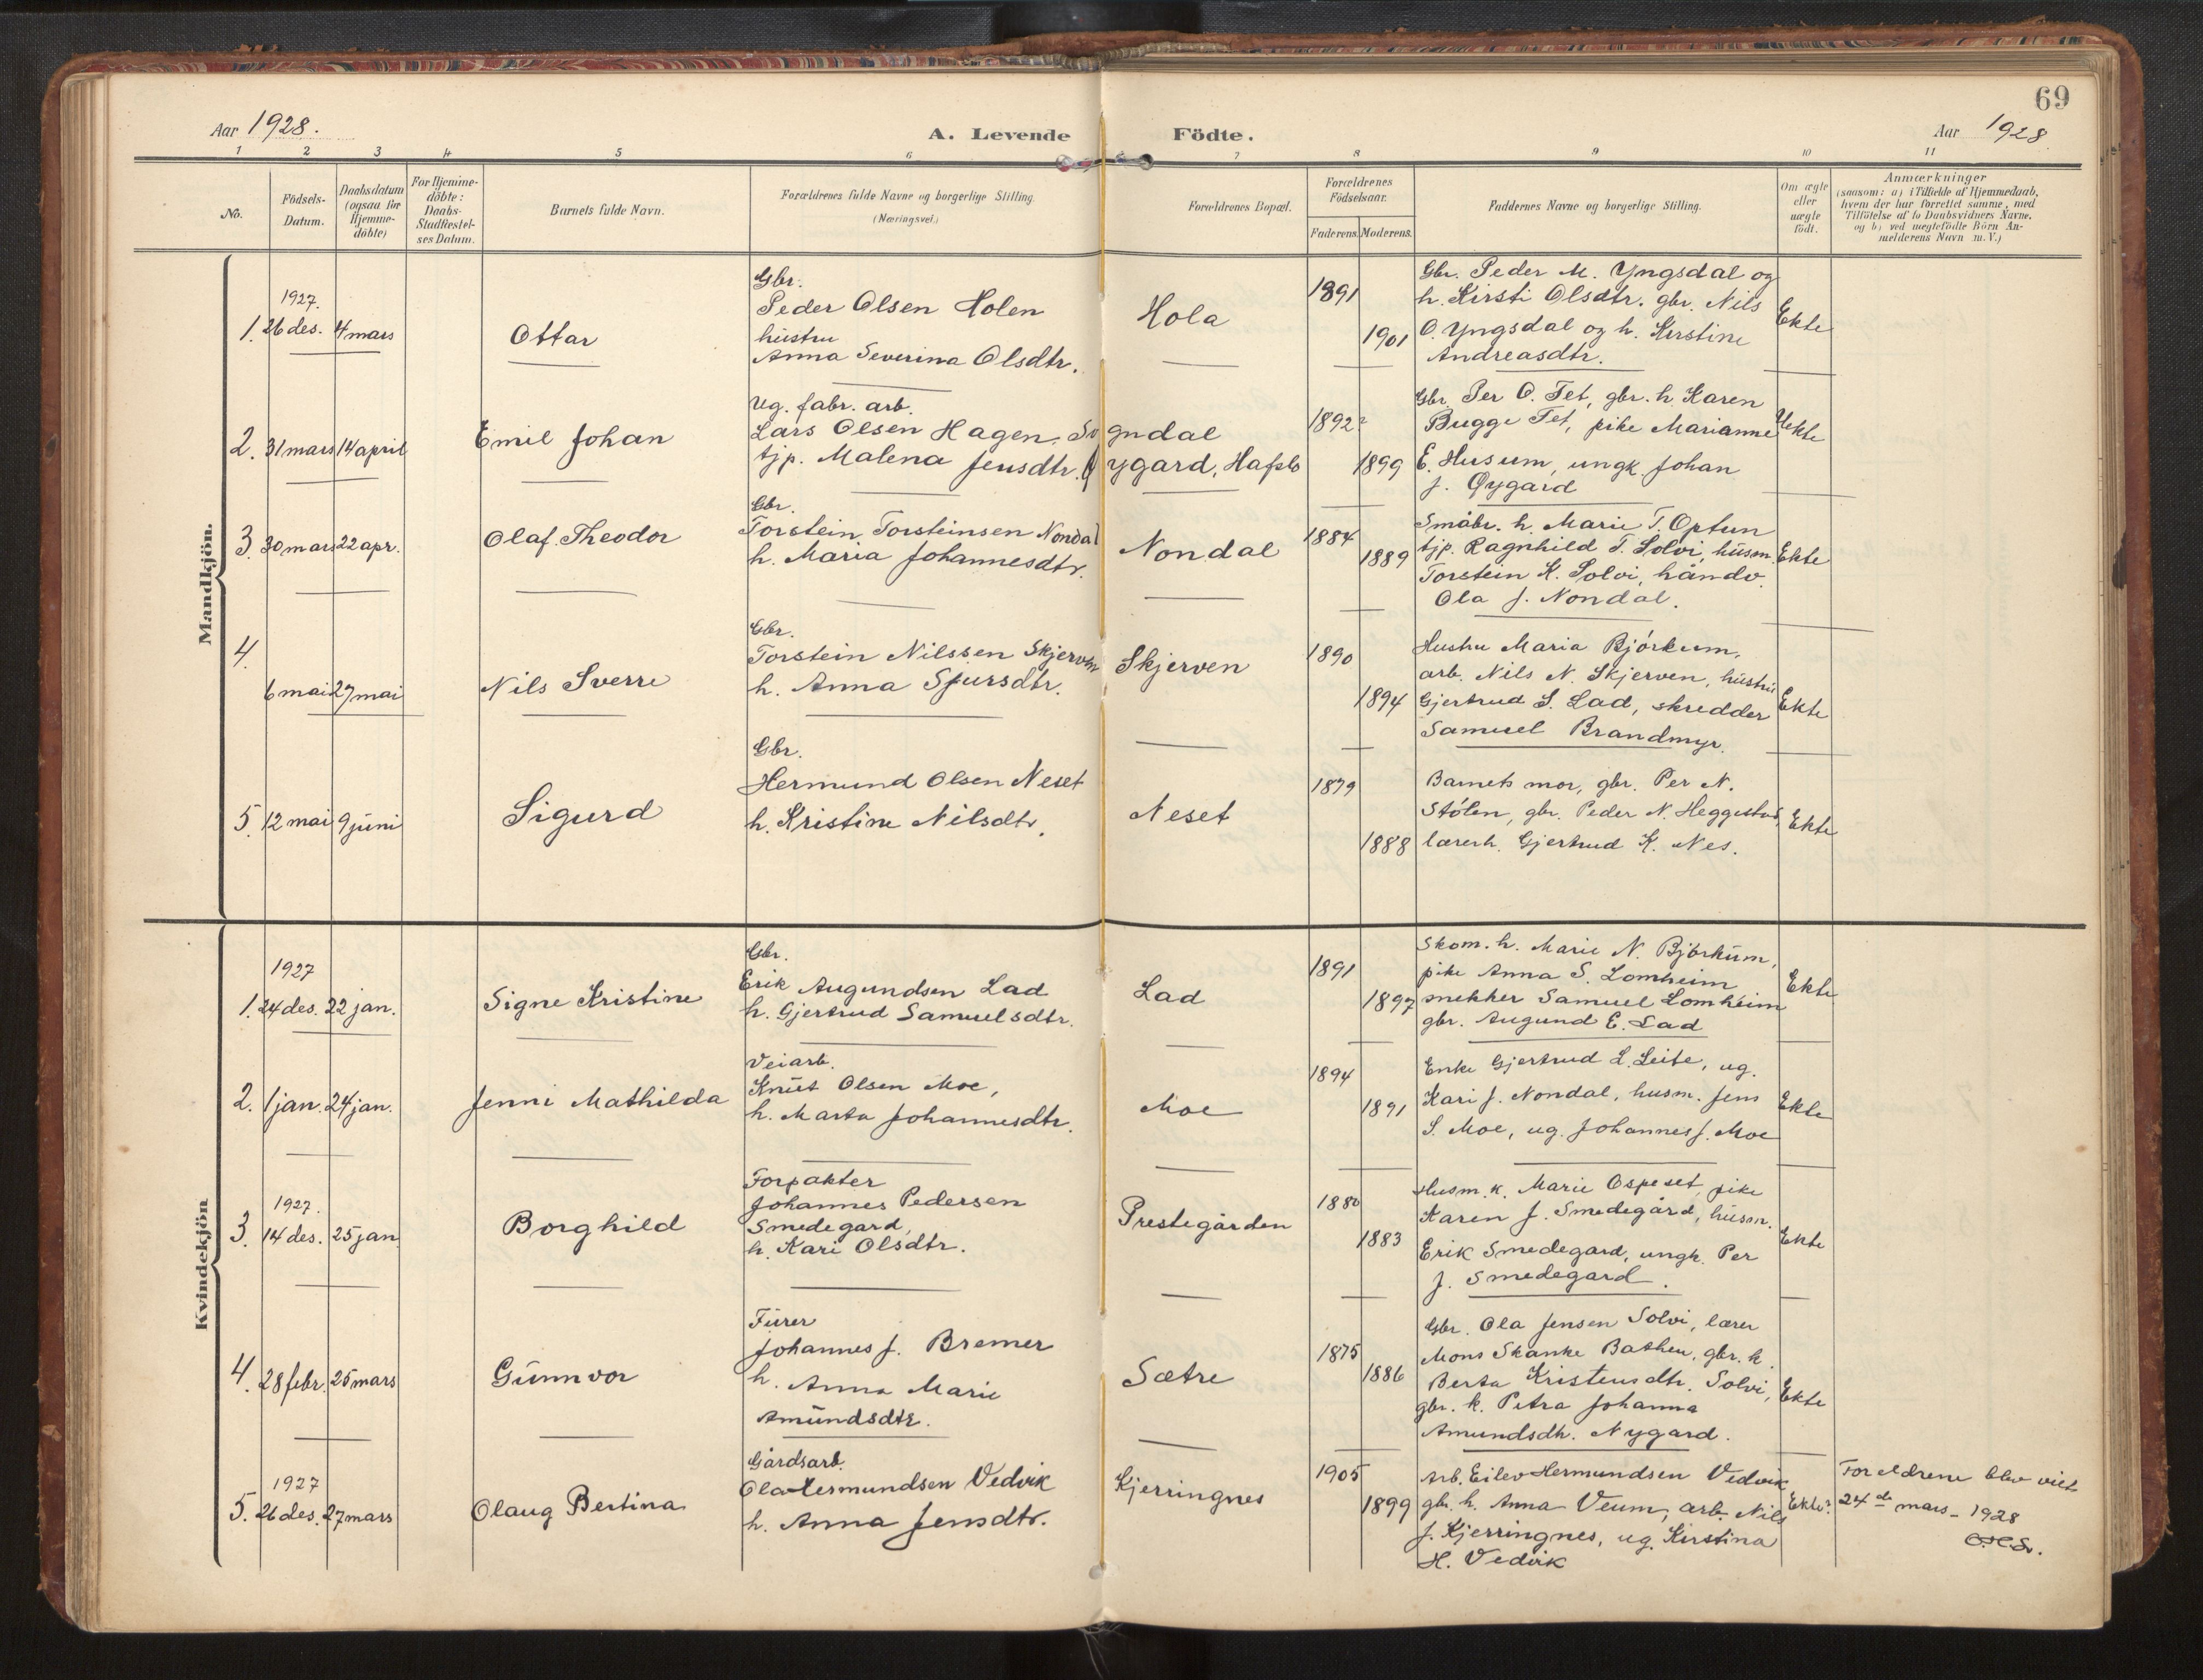 69
Aar 1928.
A. Levende Födte.
Aar 1928.
1 2 3 4 5 6 6 7 8 9 10 11
No.
Födsels-
Datum.
Daabsdatum
(ogsaa for
Hjemme-
döbte)
For Hjemme-
döbte:
Daabs-
Stadfestel-
ses Datum.
Barnets fulde Navn.
Forældrenes fulde Navne og borgerlige Stilling.
(Næringsvei.)
Forældrenes Bopæl.
Forældrenes
Födselsaar.
Faderens. Moderens.
Faddernes Navne og borgerlige Stilling.
Om ægte
eller
uægte
födt.
Anmærkninger
(saasom: a) i Tilfælde af Hjemmedaab,
hvem der har forrettet samme, med
Tilföielse af to Daabsvidners Navne,
og b) ved uægtefödte Börn An-
melderens Navn m. V.)
Mandkjön.
1. 1927.
26 des. 4 mars
Ottar
Gbr.
Peder Olsen Holen
hustru
Anna Severina Olsdtr.
Hola
1891
1901
Gbr. Peder M. Yngsdal og
h. Kirsti Olsdtr. gbr. Nils
O. Yngsdal og h. Kirstine
Andreasdtr.
Ekte
2. 31 mars 14 april
Emil Johan
Ug. fabr. arb.
Lars Olsen Hagen, Sogndal
tjp. Malena Jensdtr. Øygard, Hafslo
1892?
1899
Gbr. Per O. Fet, gbr. h. Karen
Bugge Fet, pike Marianne
E. Husum, ungk. Johan
J. Øygard
Uekte
3. 30 mars 22 apr.
Olaf Theodor
Gbr.
Torstein Torsteinsen Nondal
h. Maria Johannesdtr.
Nondal
1884
1889
Småbr. h. Marie T. Optun
tjp. Ragnhild T. Solvi, husm.
Torstein K. Solvi, håndv.
Ola J. Nondal.
Ekte
4.
6 mai 27 mai
Nils Sverre
Gbr.
Torstein Nilssen Skjerven
h. Anna Sjursdtr.
Skjerven
1890
1894
Hustru Maria Bjørkum,
arb. Nils N. Skjerven, hustru
Gjertrud S. Lad, skredder
Samuel Brandmyr.
Ekte
5. 12 mai 9 juni
Sigurd
Gbr.
Hermund Olsen Neset
h. Kristine Nilsdtr.
Neset
1879
1888
Barnets mor, gbr. Per N.
Stölen, gbr. Peder N. Heggestad,
lærerh. Gjertrud K. Nes.
Ekte
Kvindekjön
1. 1927
24 des. 22 jan.
Signe Kristine
Gbr.
Erik Augundsen Lad
h. Gjertrud Samuelsdtr.
Lad
1891
1897
Skom. h. Marie N. Bjørkum,
pike Anna S. Lomheim
snekker Samuel Lomheim
gbr. Augund E. Lad
Ekte
2. 1 jan. 24 jan.
Jenni Mathilda
Veiarb.
Knut Olsen Moe,
h. Marta Johannesdtr.
Moe
1894
1891
Enke Gjertrud L. Leite, ug.
Kari J. Nondal, husm. Jens
S. Moe, ug. Johannes J. Moe
Ekte
3. 1927.
14 des. 25 jan.
Borghild
Forpakter
Johannes Pedersen
Smedegard,
h. Kari Olsdtr.
Prestegården
1880
1883
Husm. k. Marie Ospeset, pike
Karen J. Smedegård, husm.
Erik Smedegard, ungk. Per
J. Smedegard.
Ekte
4. 28 febr. 25 mars
Gunnvor
Furer
Johannes J. Bremer
h. Anna Marie
Amundsdtr.
Sætre
1875
1886
Gbr. Ola Jensen Solvi, lærer
Mons Skanke Bathen, gbr. k.
Berta Kristensdtr. Solvi,
gbr. k. Petra Johanna
Amundsdtr. Nygard.
Ekte
5. 1927
26 des. 27 mars
Olaug Bertina
Gårdsarb.
Ola Hermundsen Vedvik
h. Anna Jensdtr.
Kjerringnes
1905
1899
Arb. Eilev Hermundsen Vedvik
gbr. h. Anna Veum, arb. Nils
J. Kjerringnes, ug. Kirstina
H. Vedvik
Ekte?
Foreldrene blev viet
24de mars 1928